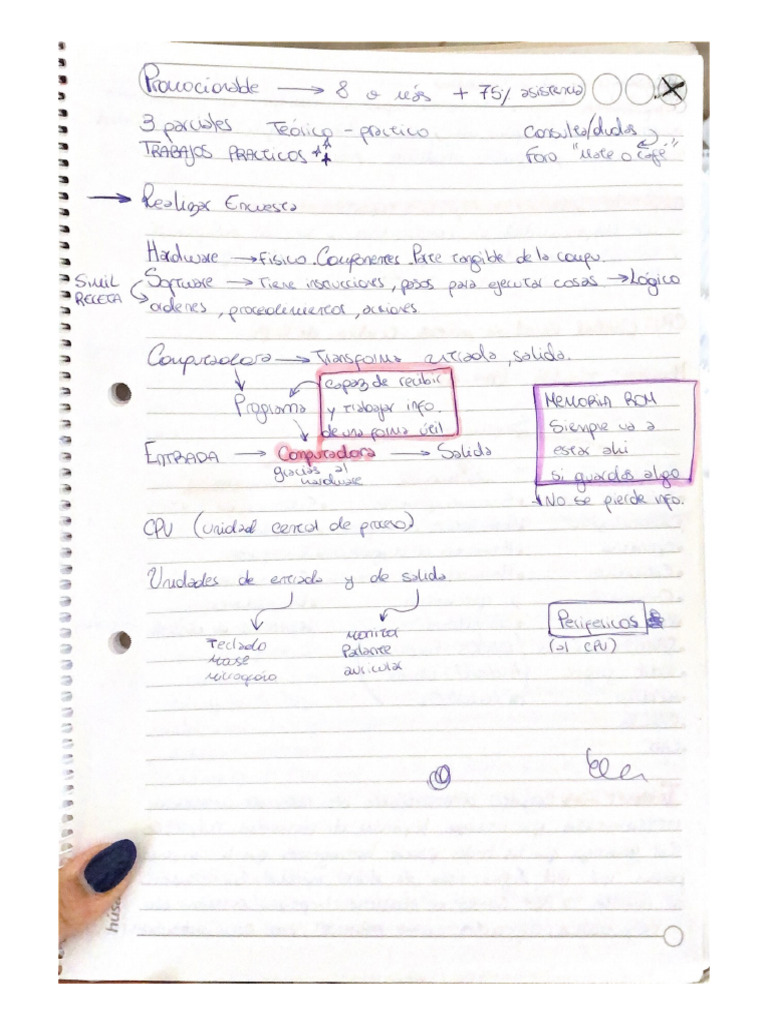 Promocionable → 8 o más + 75% asistencia
3 parciales Teórico - práctico
Consultas/dudas
TRABAJOS PRACTICOS
Foro "Mate o Café"
→ Realizar Encuesta
Hardware → Fisico. Componentes. Parte tangible de la compu.
SIMIL RECETA
Software → Tiene instrucciones, pasos para ejecutar cosas → Lógico
ordenes, procedimientos, acciones
Computadora → Transforma entrada, salida.
Programa
capaz de recibir
y trabajar info.
de una forma útil
MEMORIA ROM
Siempre va a
estar ahi
si guardas algo
No se pierde info.
ENTRADA → Computadora → Salida
gracias al
hardware
CPU (unidad central de proceso)
Unidades de entrada y de salida
Teclado
Mouse
Micrófono
Monitor
Parlante
auricular
Perifericos
(al CPU)